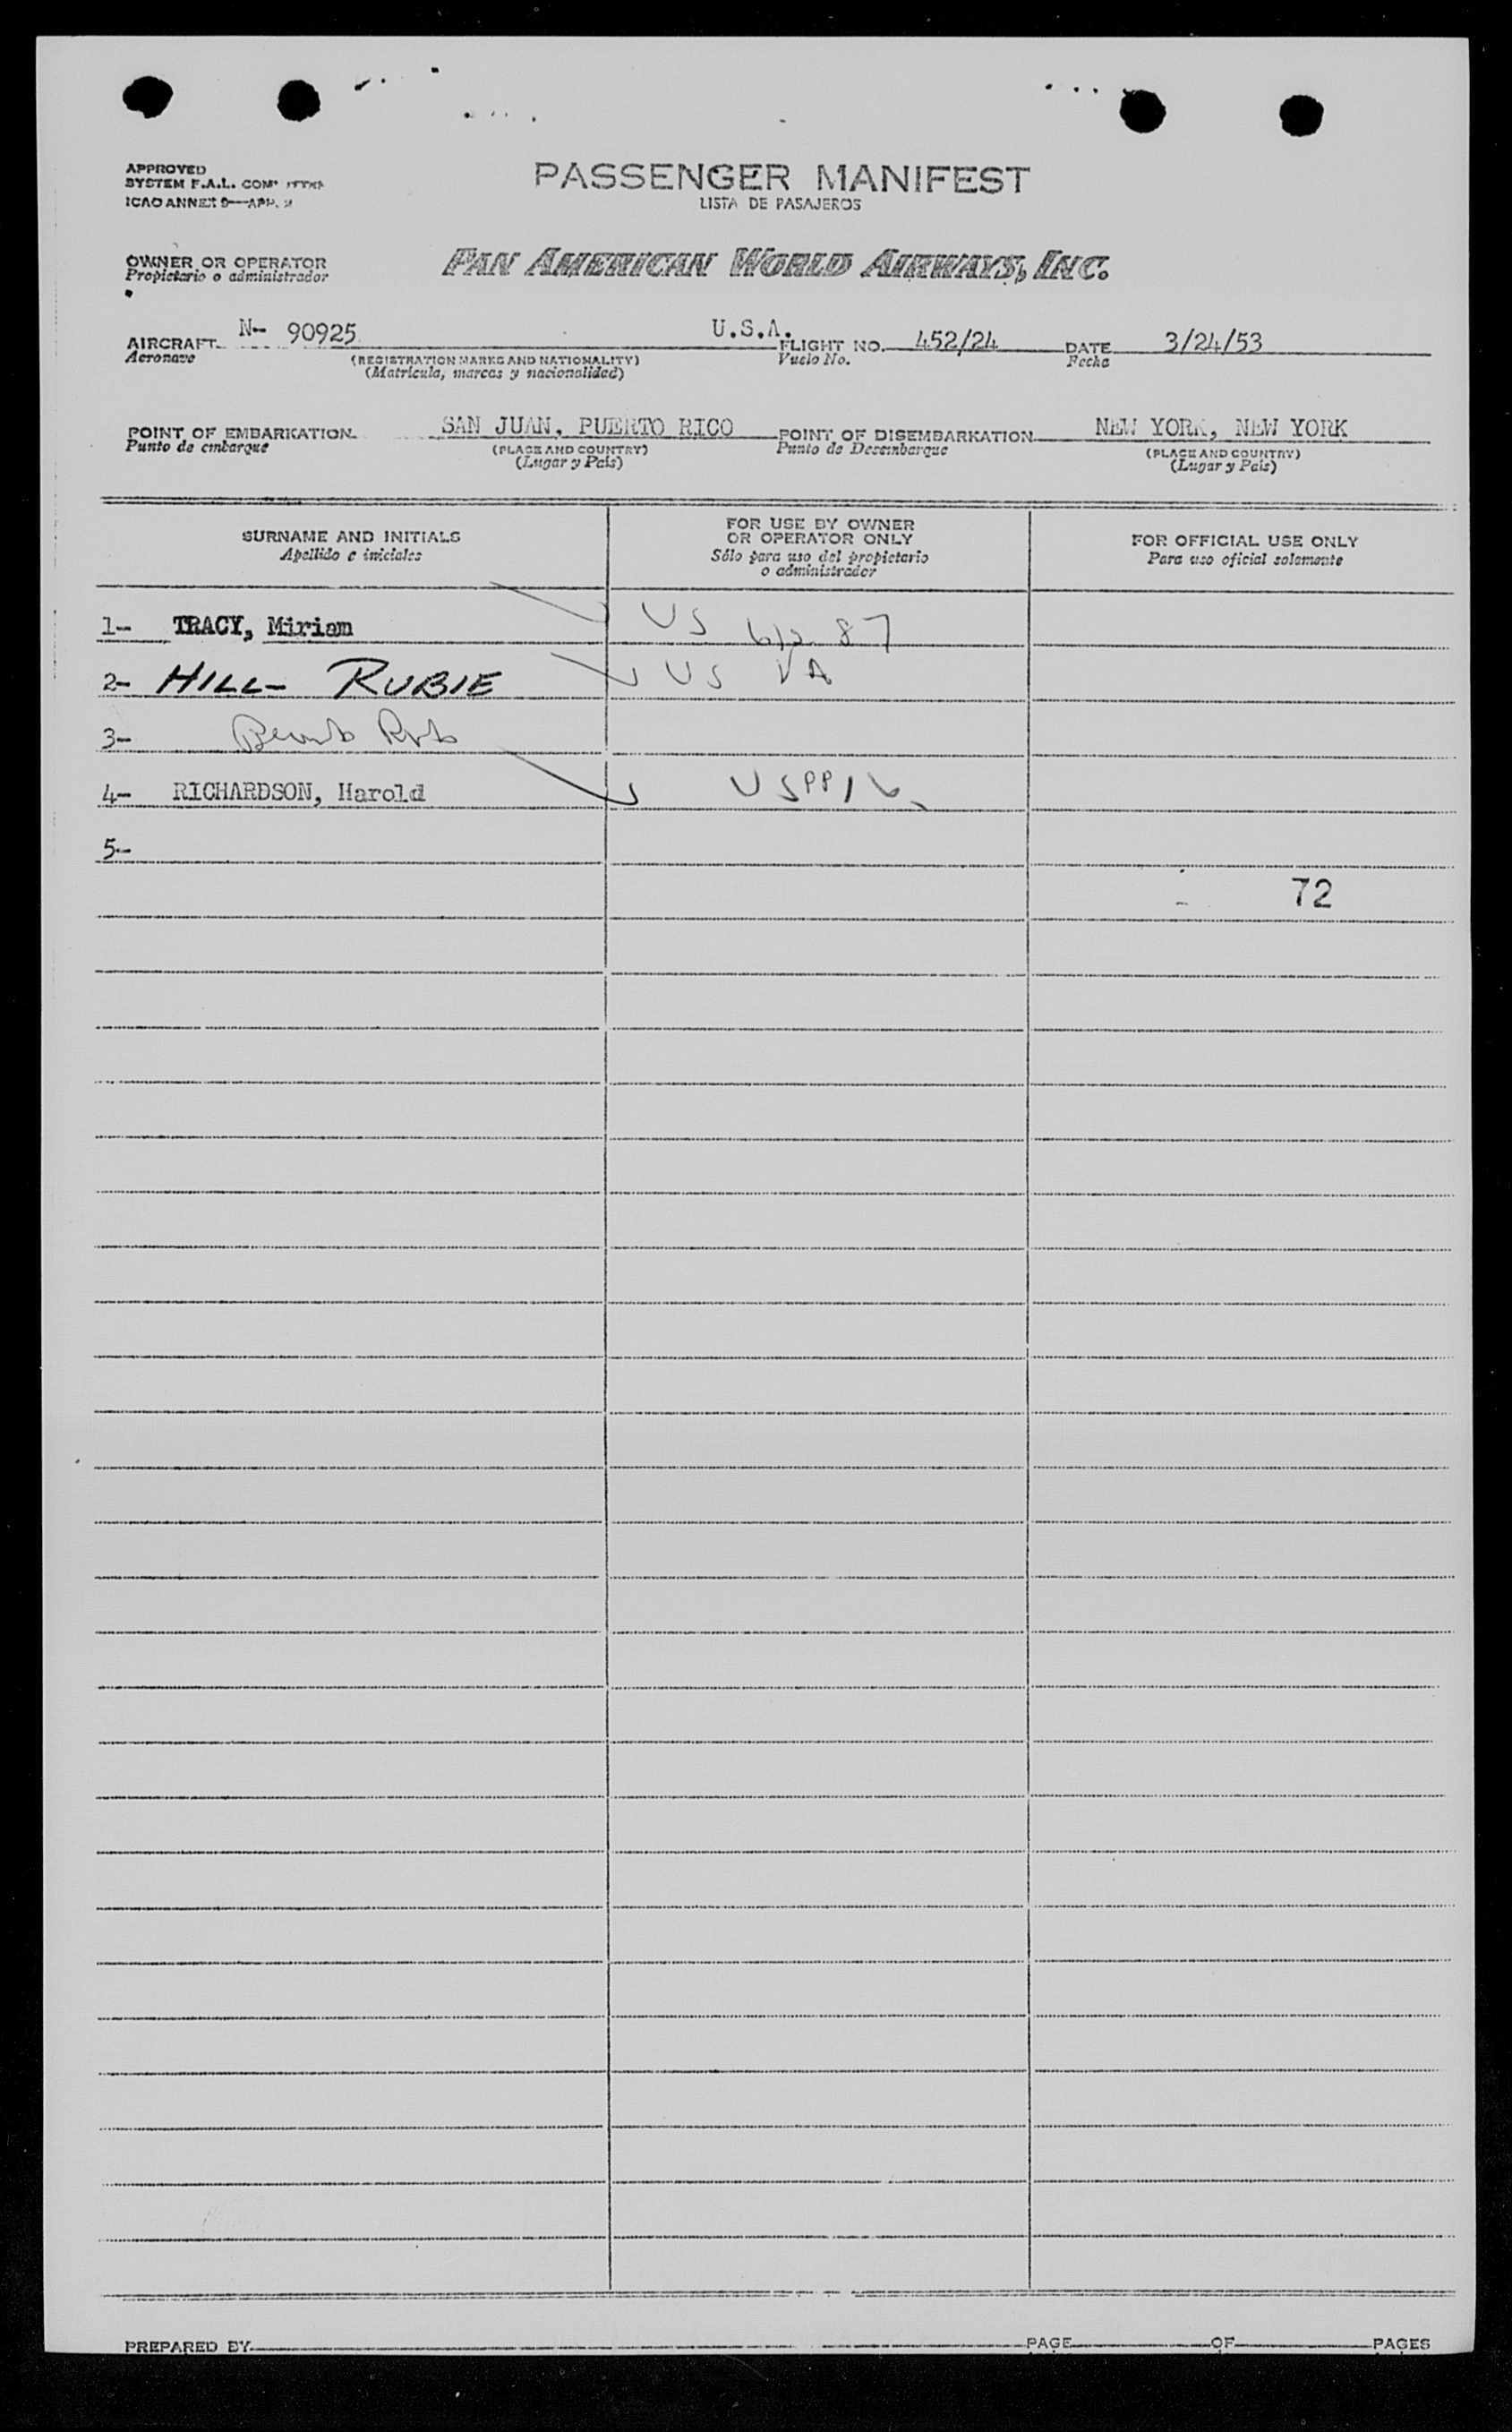 APPROVED
SYSTEM F.A.L.
ICAO ANNEX 9—APP. 2
PASSENGER MANIFEST
LISTA DE PASAJEROS
OWNER OR OPERATOR
Propietario o administrador
PAN AMERICAN WORLD AIRWAYS, INC.
AIRCRAFT N- 90925 U.S.A. FLIGHT NO. 452/24 DATE 3/24/53
Aeronave (REGISTRATION MARKS AND NATIONALITY) Vuelo No. Fecha
(Matrícula, marcas y nacionalidad)
POINT OF EMBARKATION SAN JUAN, PUERTO RICO POINT OF DISEMBARKATION NEW YORK, NEW YORK
Punto de embarque (PLACE AND COUNTRY) Punto de Desembarque (PLACE AND COUNTRY)
(Lugar y País) (Lugar y País)
SURNAME AND INITIALS
Apellido e iniciales
FOR USE BY OWNER
OR OPERATOR ONLY
Sólo para uso del propietario
o administrador
FOR OFFICIAL USE ONLY
Para uso oficial solamente
1- TRACY, Miriam US 87
2- HILL- RUBIE US VA
3-
4- RICHARDSON, Harold US PP
5-
72
PREPARED BY PAGE OF PAGES